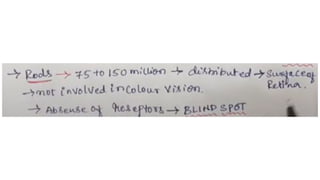 → Rods → 75 to 150 million → distributed → Surface of
Retina.
→ not involved in colour vision.
→ Absense of Receptors → BLIND SPOT